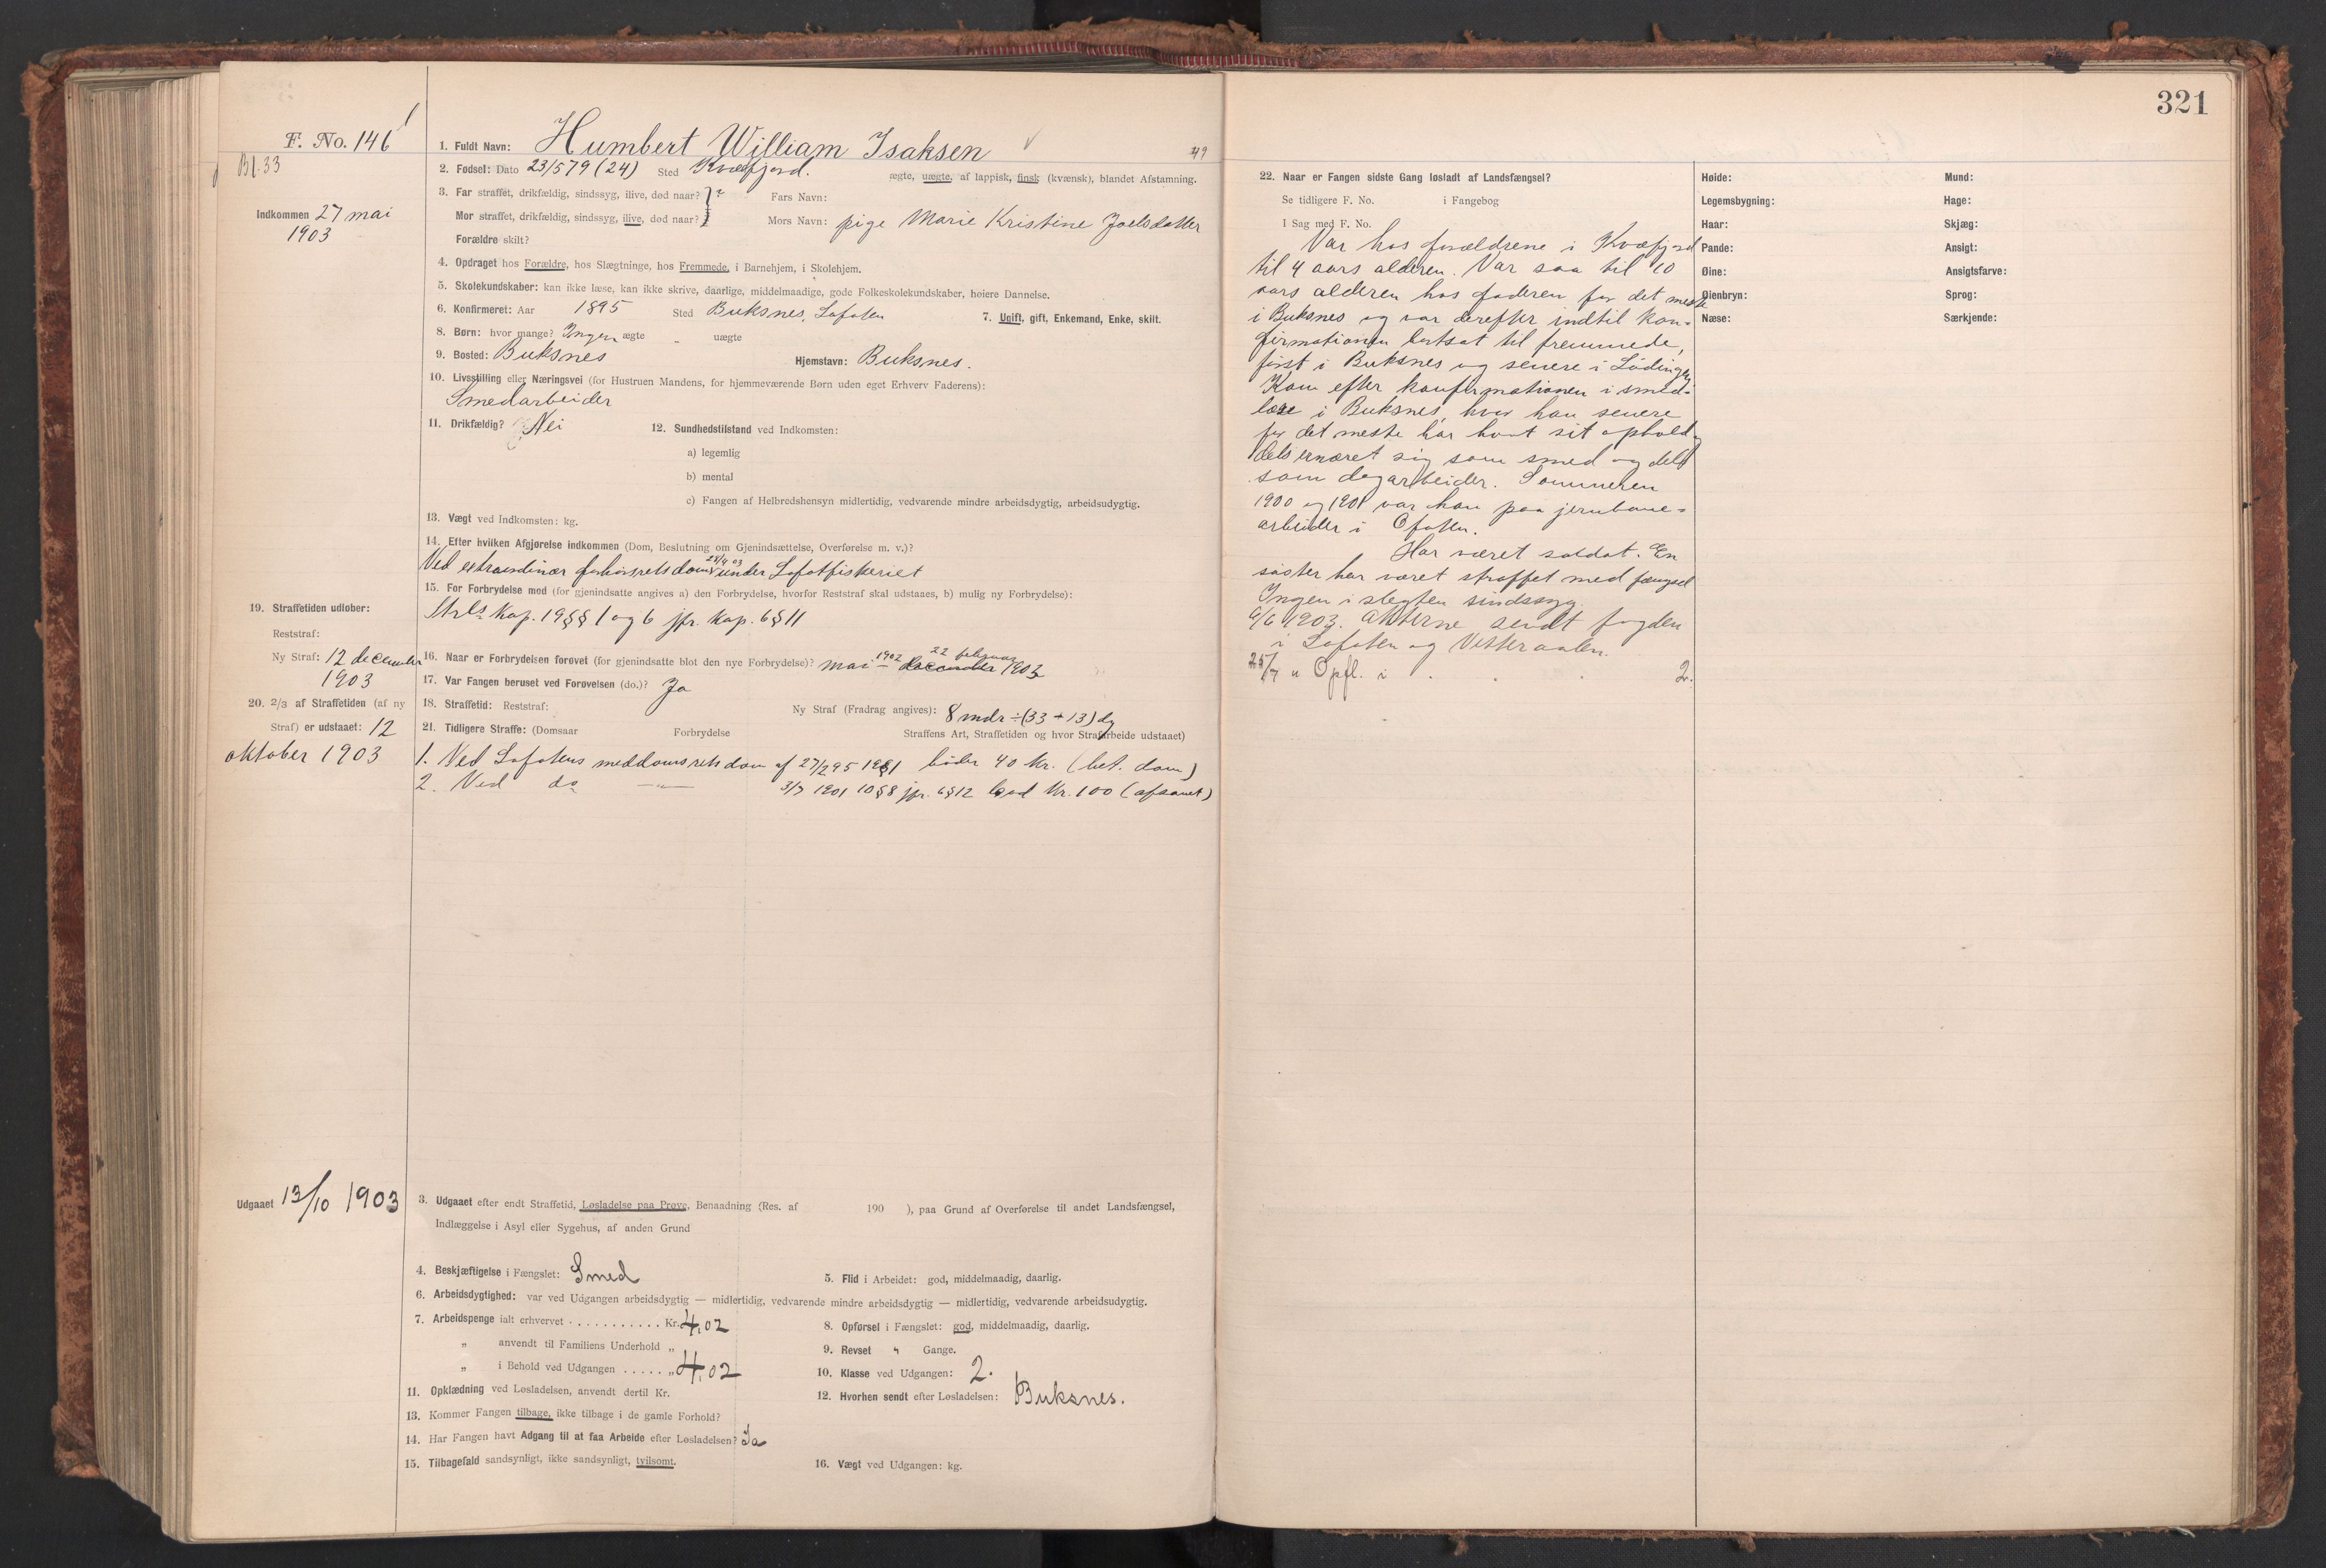 321
F. No. 146
Bl. 33
Indkommen 27 mai
1903
1. Fuldt Navn: Humbert William Isaksen
49
2. Fødsel: Dato 23/5 79 (24) Sted Kvæfjord.
ægte, uægte, af lappisk, finsk (kvænsk), blandet Afstamning.
3. Far straffet, drikfældig, sindssyg, ilive, død naar? } ? Fars Navn:
Mor straffet, drikfældig, sindssyg, ilive, død naar? Mors Navn: pige Marie Kristine Joelsdatter
Forældre skilt?
4. Opdraget hos Forældre, hos Slægtninge, hos Fremmede, i Barnehjem, i Skolehjem.
5. Skolekundskaber: kan ikke læse, kan ikke skrive, daarlige, middelmaadige, gode Folkeskolekundskaber, høiere Dannelse.
6. Konfirmeret: Aar 1895 Sted Buksnes, Lofoten 7. Ugift, gift, Enkemand, Enke, skilt.
8. Børn: hvor mange? Ingen ægte „ uægte
9. Bosted: Buksnes Hjemstavn: Buksnes.
10. Livsstilling eller Næringsvei (for Hustruen Mandens, for hjemmeværende Børn uden eget Erhverv Faderens):
Smedarbeider
11. Drikfældig? Nei 12. Sundhedstilstand ved Indkomsten:
a) legemlig
b) mental
c) Fangen af Helbredshensyn midlertidig, vedvarende mindre arbeidsdygtig, arbeidsudygtig.
13. Vægt ved Indkomsten: kg.
14. Efter hvilken Afgjørelse indkommen (Dom, Beslutning om Gjenindsættelse, Overførelse m. v.)?
Ved extraordinær forhørsretsdom 28/4 03 under Lofotfiskeriet
15. For Forbrydelse mod (for gjenindsatte angives a) den Forbrydelse, hvorfor Reststraf skal udstaaes, b) mulig ny Forbrydelse):
Strls Kap. 19 §§ 1 og 6 jfr. Kap. 6 § 11
19. Straffetiden udløber:
Reststraf:
Ny Straf: 12 december
1903
16. Naar er Forbrydelsen forøvet (for gjenindsatte blot den nye Forbrydelse)? mai 1902 – december 22 februar 1903
17. Var Fangen beruset ved Forøvelsen (do.)? Ja
20. 2/3 af Straffetiden (af ny
Straf) er udstaaet: 12
oktober 1903
18. Straffetid: Reststraf: Ny Straf (Fradrag angives): 8 mdr ÷ (33 + 13) dg
21. Tidligere Straffe: (Domsaar Forbrydelse Straffens Art, Straffetiden og hvor Strafarbeide udstaaet)
1. Ved Lofotens meddomsretsdom af 27/2 95 bøder 40 kr. (bet. dom)
2. Ved do —„— 3/7 1901 10 § 8 jfr. 6 § 12 bød Kr. 100 (afsonet)
Udgaaet 13/10 1903
3. Udgaaet efter endt Straffetid, Løsladelse paa Prøve, Benaadning (Res. af 190 ), paa Grund af Overførelse til andet Landsfængsel,
Indlæggelse i Asyl eller Sygehus, af anden Grund
4. Beskjæftigelse i Fængslet: Smed 5. Flid i Arbeidet: god, middelmaadig, daarlig.
6. Arbeidsdygtighed: var ved Udgangen arbeidsdygtig — midlertidig, vedvarende mindre arbeidsdygtig — midlertidig, vedvarende arbeidsudygtig.
7. Arbeidspenge ialt erhvervet . . . . . . . . . . . Kr. 4,02 8. Opførsel i Fængslet: god, middelmaadig, daarlig.
„ anvendt til Familiens Underhold „ 9. Revset „ Gange.
„ i Behold ved Udgangen . . . . . „ 4,02 10. Klasse ved Udgangen: 2.
11. Opklædning ved Løsladelsen, anvendt dertil Kr. 12. Hvorhen sendt efter Løsladelsen: Buksnes.
13. Kommer Fangen tilbage, ikke tilbage i de gamle Forhold?
14. Har Fangen havt Adgang til at faa Arbeide efter Løsladelsen? Ja
15. Tilbagefald sandsynligt, ikke sandsynligt, tvilsomt. 16. Vægt ved Udgangen: kg.
22. Naar er Fangen sidste Gang løsladt af Landsfængsel?
Se tidligere F. No. i Fangebog
I Sag med F. No.
Var hos forældrene i Kvæfjord
til 4 aars alderen. Var saa til 10
aars alderen hos faderen for det meste
i Buksnes og var derefter indtil kon-
firmationen bortsat til fremmede,
først i Buksnes og senere i Lødingen
Kom efter konfirmationen i smed-
lære i Buksnes, hvor han senere
for det meste har havt sit ophold og
dels ernæret sig som smed og dels
som dagarbeider. Sommeren
1900 og 1901 var han paa jernbane-
arbeider i Ofoten.
Har været soldat. En
søster har været straffet med fængsel
Ingen i slegten sindssyg.
9/6 1903. Akterne sendt fogden
i Lofoten og Vesteraalen.
25/7 „ Opfl. i . . . 2.
Høide:
Legemsbygning:
Haar:
Pande:
Øine:
Øienbryn:
Næse:
Mund:
Hage:
Skjæg:
Ansigt:
Ansigtsfarve:
Sprog:
Særkjende: